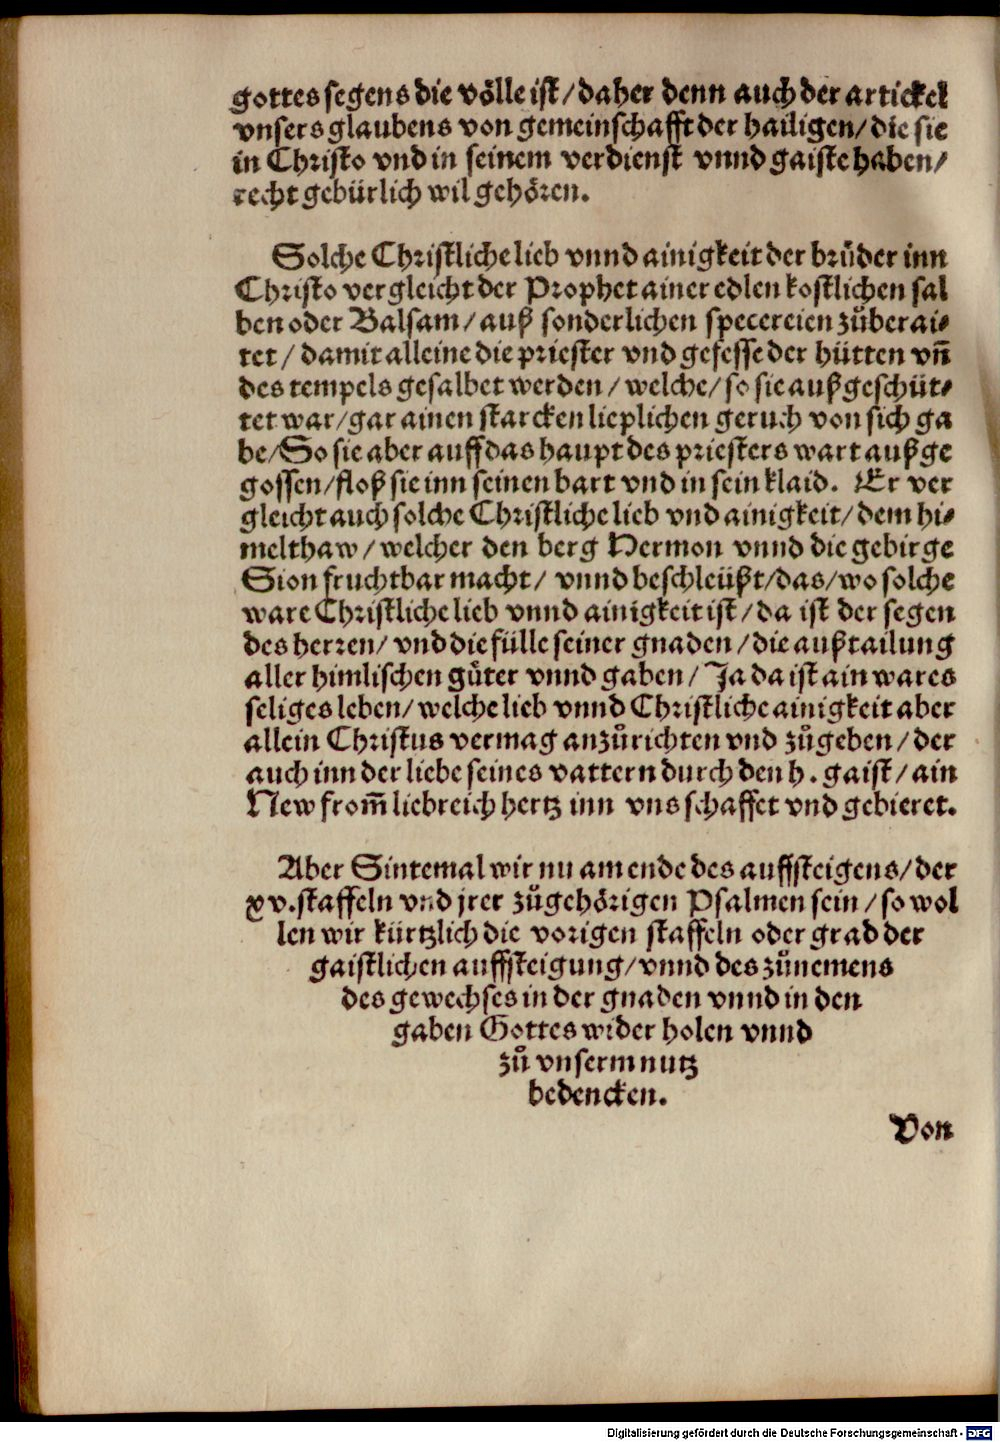 gottes segens die völle ist / daher denn auch der artickel
vnsers glaubens von gemeinschafft der hailigen / die sie
in Christo vnd in seinem verdienst vnnd gaiste haben /
recht gebürlich wil gehören.
Solche Christliche lieb vnnd ainigkeit der brůder inn
Christo vergleicht der Prophet ainer edlen kostlichen sal
ben oder Balsam / auß sonderlichen specereien zůberai⸗
tet / damit alleine die priester vnd gefesse der hütten vñ
des tempels gesalbet werden / welche / so sie außgeschüt⸗
tet war / gar ainen starcken lieplichen geruch von sich ga
be / So sie aber auff das haupt des priesters wart außge
gossen / floß sie inn seinen bart vnd in sein klaid. Er ver
gleicht auch solche Christliche lieb vnd ainigkeit / dem hi⸗
melthaw / welcher den berg Hermon vnnd die gebirge
Sion fruchtbar macht / vnnd beschleüßt / das / wo solche
ware Christliche lieb vnnd ainigkeit ist / da ist der segen
des herren / vnd die fülle seiner gnaden / die außtailung
aller himlischen gůter vnnd gaben / Ja da ist ain wares
seliges leben / welche lieb vnnd Christliche ainigkeit aber
allein Christus vermag anzůrichten vnd zůgeben / der
auch inn der liebe seines vattern durch den h. gaist / ain
New from̃ liebreich hertz inn vns schaffet vnd gebieret.
Aber Sintemal wir nu am ende des auffsteigens / der
xv. staffeln vnd jrer zůgehörigen Psalmen sein / so wol
len wir kürtzlich die vorigen staffeln oder grad der
gaistlichen auffsteigung / vnnd des zůnemens
des gewechses in der gnaden vnnd in den
gaben Gottes wider holen vnnd
zů vnserm nutz
bedencken.
Von
Digitalisierung gefördert durch die Deutsche Forschungsgemeinschaft - DFG